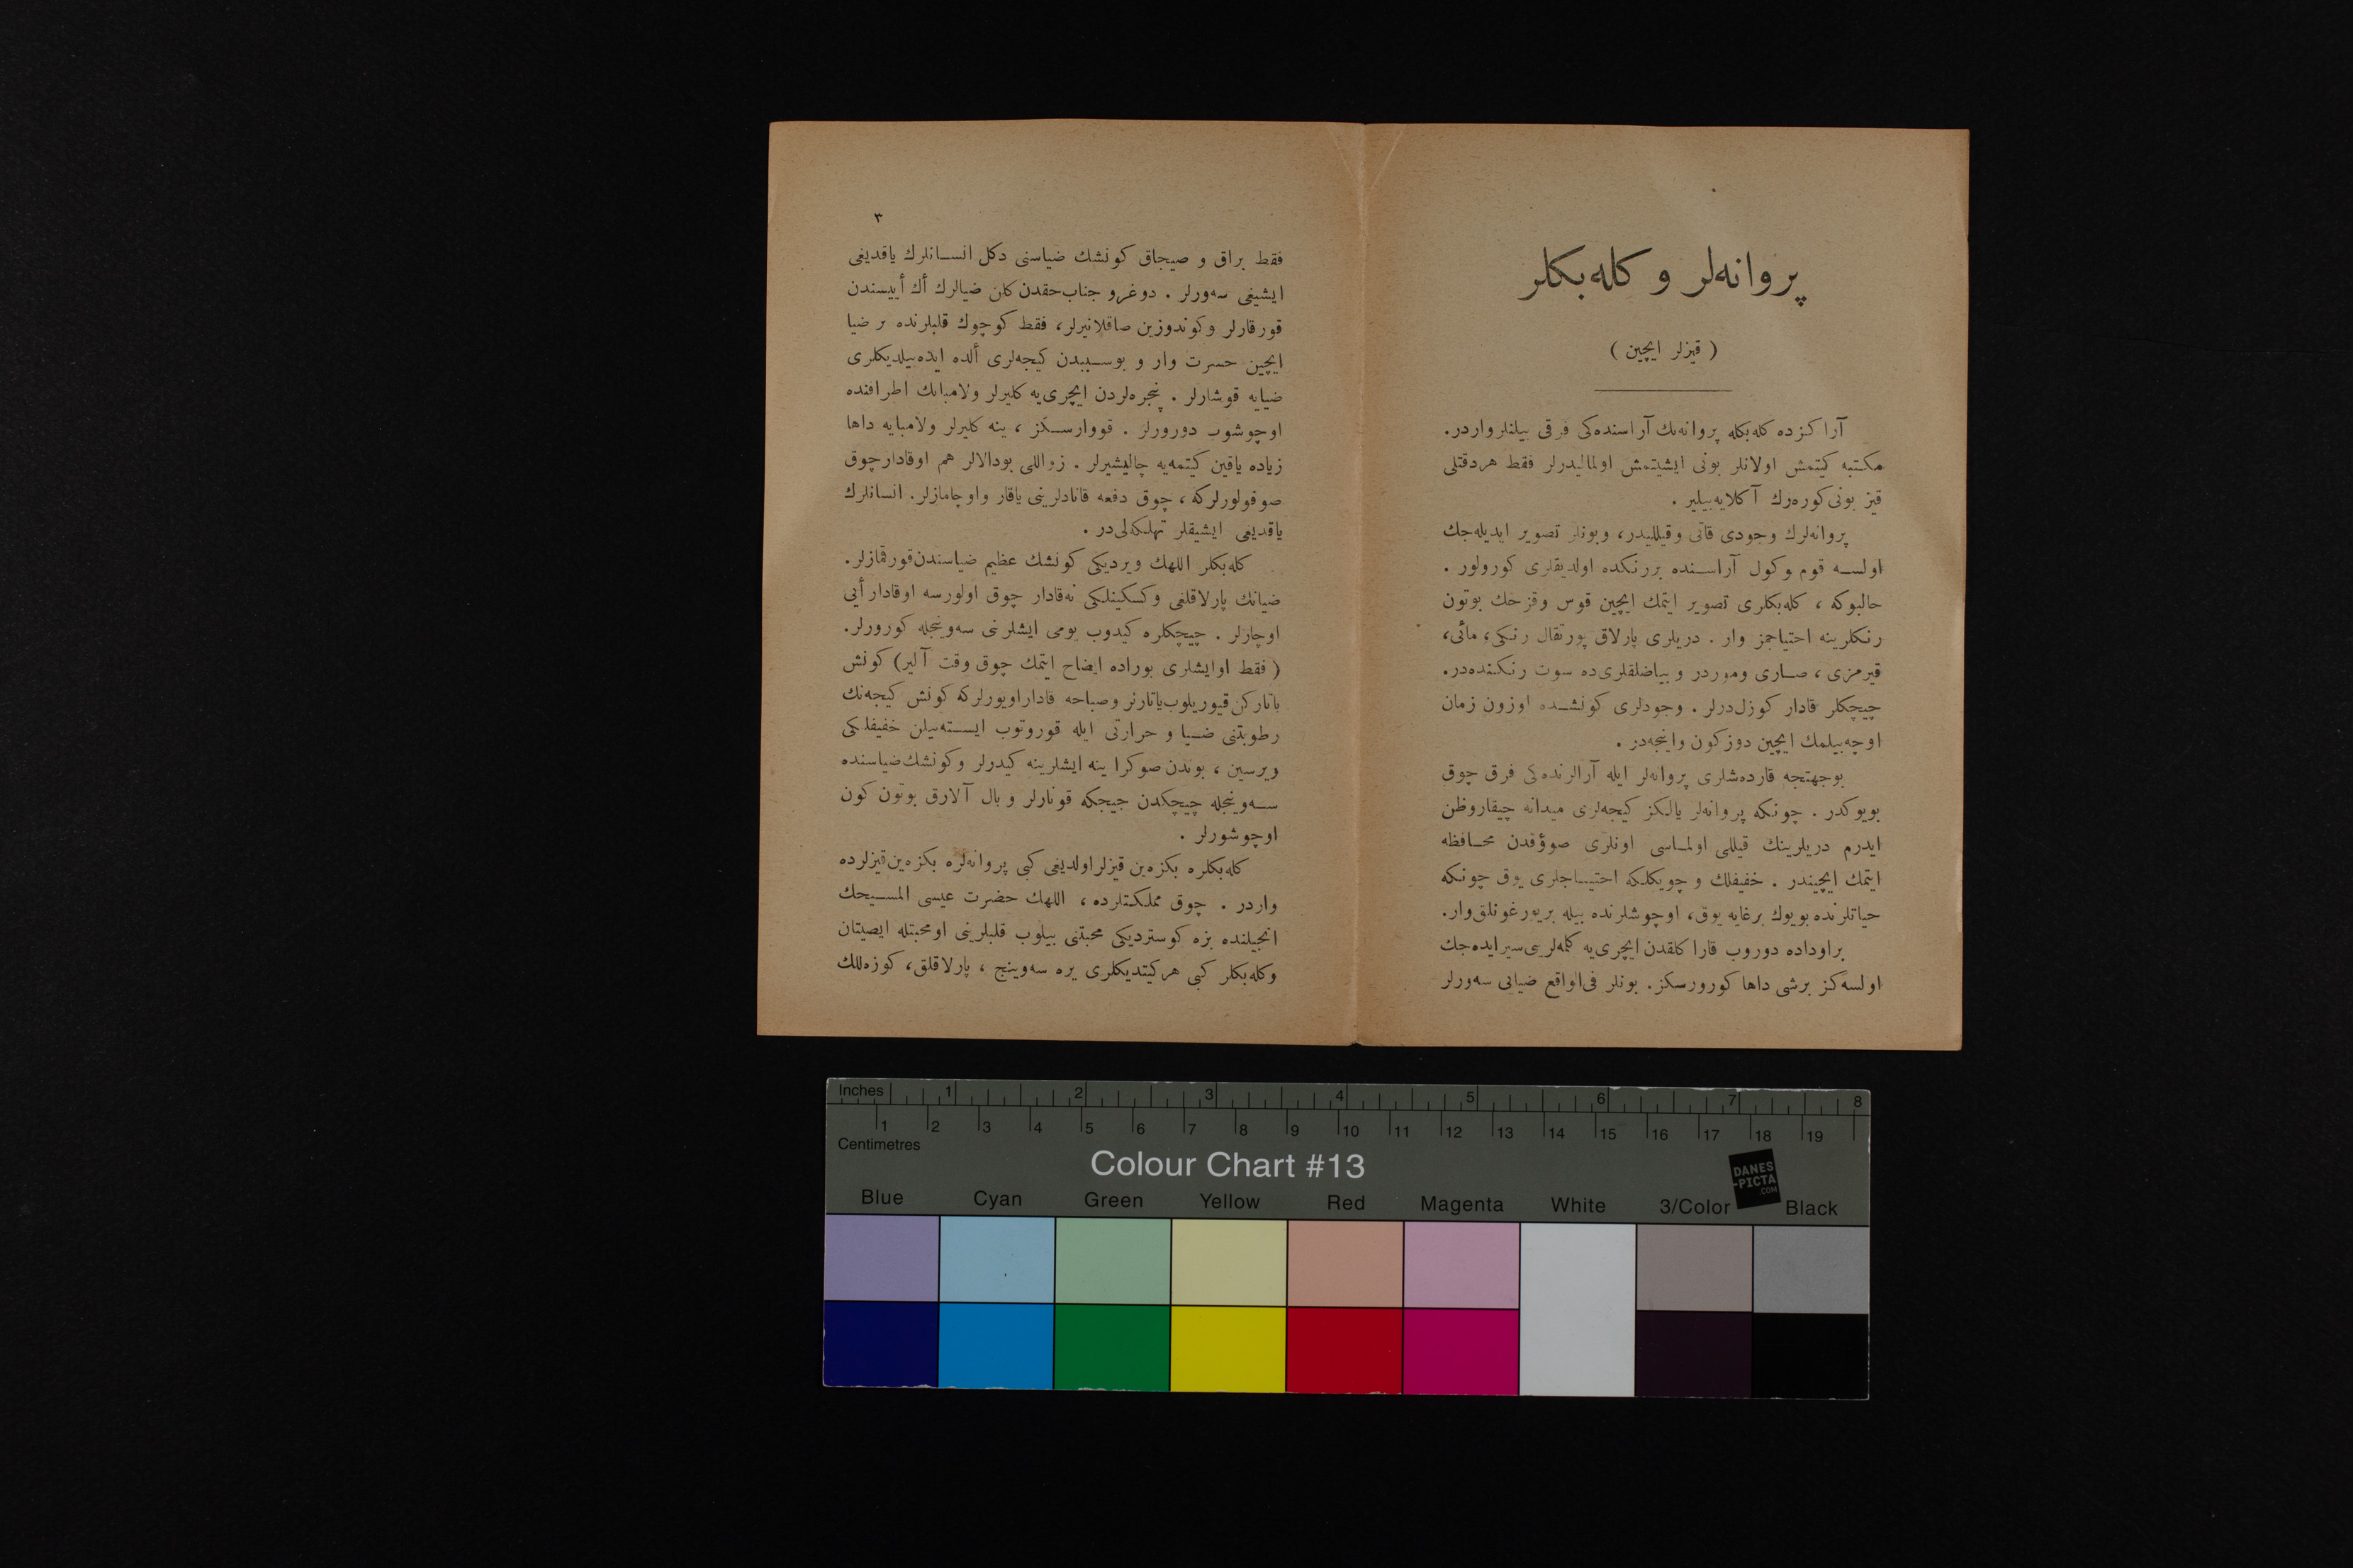 پروانه‌لر و كله‌بكلر
( قیزلر ایچین )
آراكزده كله‌بكله پروانه‌نك آراسنده‌كی فرقی بیلنلر واردر.
مكتبه كیتمش اولانلر بونی ایشیتمش اولمالیدرلر فقط هر دقتلی
قیز بونی كوره‌رك آكلایه‌بیلیر .
پروانه‌لرك وجودی قاتی و قیللیدر، و بونلر تصویر ایدیله‌جك
اولسه قوم و كول آراسنده بررنكده اولدیقلری كورولور .
حالبوكه ، كله‌بكلری تصویر ایتمك ایچین قوس و قزحك بوتون
رنكلرینه احتیاجمز وار . دریلری پارلاق پورتقال رنكی، مائی،
قیرمزی ، صاری و موردر و بیاضلقلری‌ده سوت رنكنده‌در.
چیچكلر قادار كوزل‌درلر . وجودلری كونشده اوزون زمان
اوچه‌بیلمك ایچین دوزكون و اینجه‌در .
بوجهتجه قارده‌شلری پروانه‌لر ایله آرالرنده‌كی فرق چوق
بویوكدر . چونكه پروانه‌لر یالكز كیجه‌لری میدانه چیقار وظن
ایدرم دریلرینك قیللی اولماسی اونلری صوؤقدن محافظه
ایتمك ایچیندر . خفیفلك و چویكلكه احتیاجلری یوق چونكه
حیاتلرنده بویوك برغایه یوق، اوچوشلرنده بیله بریورغونلق وار.
براوداده دوروب قاراكلقدن ایچری‌یه كلمه‌لرینی سیر ایده‌جك
اولسه‌كز برشی داها كورورسكز. بونلر فی‌الواقع ضیایی سه‌ورلر
٣
فقط براق و صیجاق كونشك ضیاسنی دكل انسانلرك یاقدیغی
ایشیغی سه‌ورلر . دوغرو جناب‌حقدن كلن ضیالرك أك أییسندن
قورقارلر و كوندوزین صاقلانیرلر، فقط كوچوك قلبلرنده بر ضیا
ایچین حسرت وار و بوسببدن كیجه‌لری ألده ایده‌بیلدیكلری
ضیایه قوشارلر . پنجره‌لردن ایچری‌یه كلیرلر ولامبانك اطرافنده
اوچوشوب دورورلر . قووارسكز ، ینه كلیرلر ولامبایه داها
زیاده یاقین كیتمه‌یه چالیشیرلر . زواللی بودالالر هم اوقادار چوق
صوقولورلركه ، چوق دفعه قانادلرینی یاقار و اوچامازلر. انسانلرك
یاقدیغی ایشیقلر تهلكه‌لی‌در .
كله‌بكلر اللهك ویردیكی كونشك عظیم ضیاسندن قورقمازلر.
ضیانك پارلاقلغی و كسكینلكی نه‌قادار چوق اولورسه اوقادار أیی
اوچارلر . چیچكلره كیدوب یومی ایشلرنی سه‌وینجله كورورلر.
( فقط اوایشلری بوراده ایضاح ایتمك چوق وقت آلیر) كونش
باتاركن قیوریلوب یاتارلر وصباحه قادار اویورلركه كونش كیجه‌نك
رطوبتنی ضیا و حرارتی ایله قوروتوب ایسته‌نیلن خفیفلكی
ویرسین ، بوندن صوكرا ینه ایشلرینه كیدرلر و كونشك ضیاسنده
سه‌وینجله چیچكدن جیجكه قونارلر و بال آلارق بوتون كون
اوچوشورلر .
كله‌بكلره بكزه‌ین قیزلر اولدیغی كبی پروانه‌لره بكزه‌ین قیزلرده
واردر . چوق مملكتلرده ، اللهك حضرت عیسی المسیحك
انجیلنده بزه كوستردیكی محبتنی بیلوب قلبلرینی اومحبتله ایصیتان
وكله‌بكلر كبی هر كیتدیكلری یره سه‌وینج ، پارلاقلق، كوزه‌للك
Inches 1 2 3 4 5 6 7 8
1 2 3 4 5 6 7 8 9 10 11 12 13 14 15 16 17 18 19
Centimetres
Colour Chart #13
DANES
-PICTA
.COM
Blue Cyan Green Yellow Red Magenta White 3/Color Black